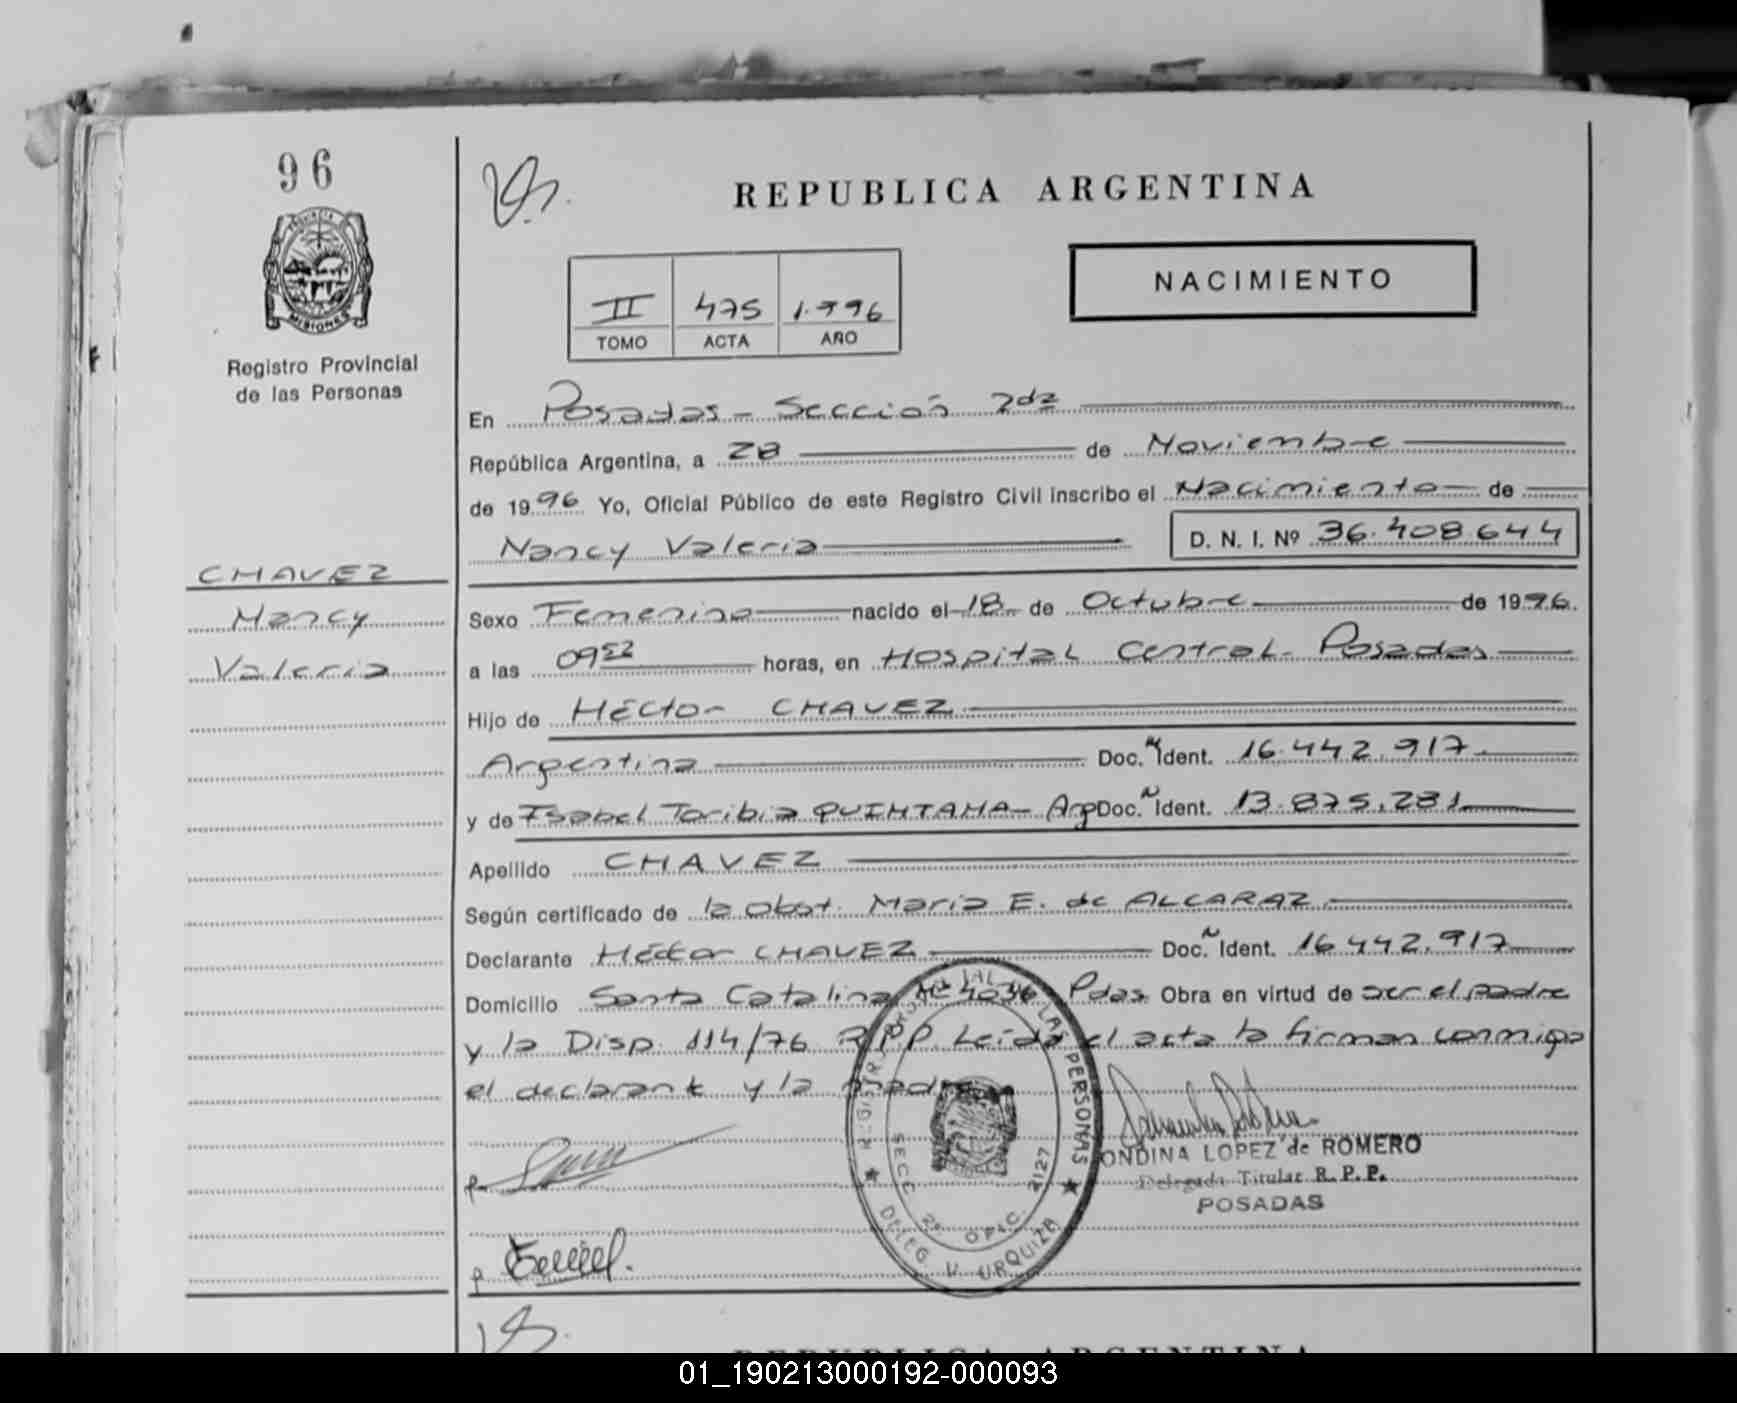 96
REPUBLICA ARGENTINA
PROVINCIA
MISIONES
Registro Provincial
de las Personas
NACIMIENTO
II 475 1.996
TOMO ACTA AÑO
En Posadas - Sección 2da
República Argentina, a 28 de Noviembre
de 1996 Yo, Oficial Público de este Registro Civil inscribo el Nacimiento de
Nancy Valeria D. N. I. Nº 36.408.644
CHAVEZ
Nancy
Valeria
Sexo Femenino nacido el 18 de Octubre de 1996.
a las 09 horas, en Hospital Central - Posadas
Hijo de Héctor CHAVEZ
Argentina Doc. Ident. 16.442.917
y de Isabel Toribia QUINTANA - Arg Doc. Ident. 13.875.281
Apellido CHAVEZ
Según certificado de la obst. María E. de ALCARAZ
Declarante Héctor CHAVEZ Doc. Ident. 16.442.917
Domicilio Santa Catalina Nº 4036 Pdas. Obra en virtud de ser el padre
y la Disp. 114/76 R.P.P. Leída el acta la firman conmigo
el declarante y la madre
REGISTRO PROVINCIAL DE LAS PERSONAS
SECC. 2ª OFIC. 2127
DELEG. V. URQUIZA
ONDINA LOPEZ de ROMERO
Delegada Titular R. P. P.
POSADAS
REPUBLICA ARGENTINA
01_190213000192-000093